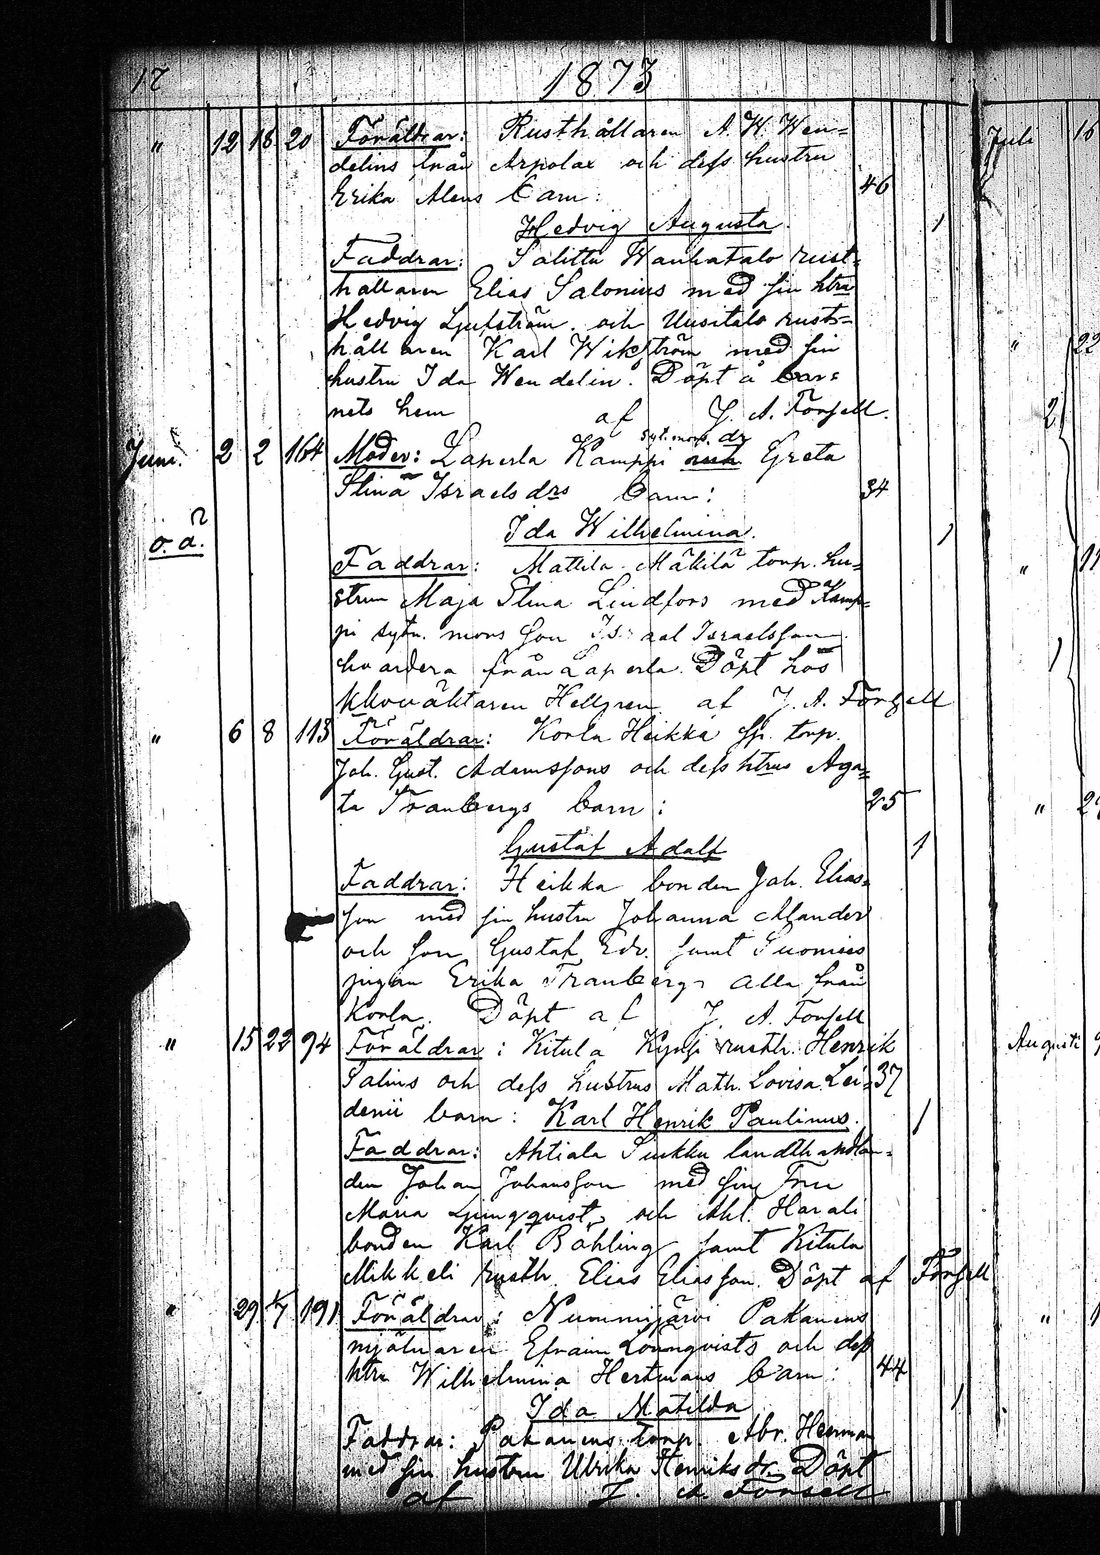 17 1873
" 12 18 20 Föräldrar: Rusthållaren A. W. Wen=
delins från Arpolax och dess hustru
Erika Alens barn: 46
Hedvig Augusta. 1
Faddrar: Salittu Wanhatalo rust=
hållaren Elias Salonius med sin htru
Hedvig Ljufström och Uusitalo rust=
hållaren Karl Wikström med sin
hustru Ida Wendelin. Döpt å bar=
nets hem af J. A. Forssell.
Juni. 2 2 164 Moder: Laperla Kamppi syt. mors dr Greta
Stina Israelsdrs barn: 34
o. ä.
Ida Wilhelmina. 1
Faddrar: Mattila Mäkilä torp. hu=
strun Maja Stina Lindfors med Kamp=
pi sytn. mors son Israel Israelsson
hvardera från Laperla. Döpt hos
klockaren Hellgren af J. A. Forssell
" 6 8 113 Föräldrar: Korla Heikka sp. torp.
Joh. Gust. Adamssons och dess htrus Aga=
ta Franbergs barn: 25
Gustaf Adolf 1
Faddrar: Heikka bonden Joh. Elias=
son med sin hustru Johanna Mander
och son Gustaf Edv. samt Suomis
pigan Erika Franberg alla från
Korla. Döpt af J. A. Forssell
" 15 22 94 Föräldrar: Kitula rusth. Henrik
Salins och dess hustrus Math. Lovisa Lei= 37
denii barn: Karl Henrik Paulinus. 1
Faddrar: Ahtiala Sukku landthandlan=
den Johan Johansson med sin Fru
Maria Ljungqvist, och Aht. Harali
bonden Karl Böhling samt Kitula
Mikkeli rusth. Elias Eliasson. Döpt af Forssell
" 29 1/7 191 Föräldrar: Nummijärvi Pakanens
mjölnaren Efraim Lönnqvists och dess
htru Wilhelmina Hertmans barn: 44
Ida Matilda 1
Faddrar: Pakanens torp. Abr. Herman
med sin hustru Ulrika Henriksdr. Döpt
af J. A. Forssell
Juli 16
" 22
2
"
1
"
Augusti 9
"